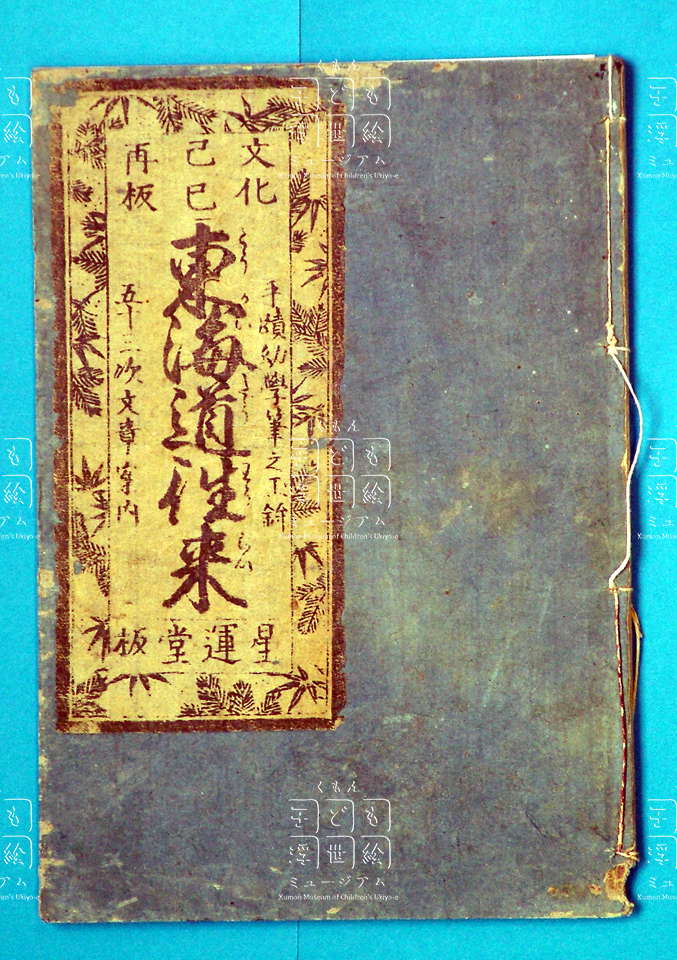 文化
己巳
再板
手蹟幼学筆之玉鉾
とうかいだうわうらい
東海道往来
五十三次文章案内
星運堂板
くもん
子ども
浮世絵
ミュージアム
Kumon Museum of Children's Ukiyo-e